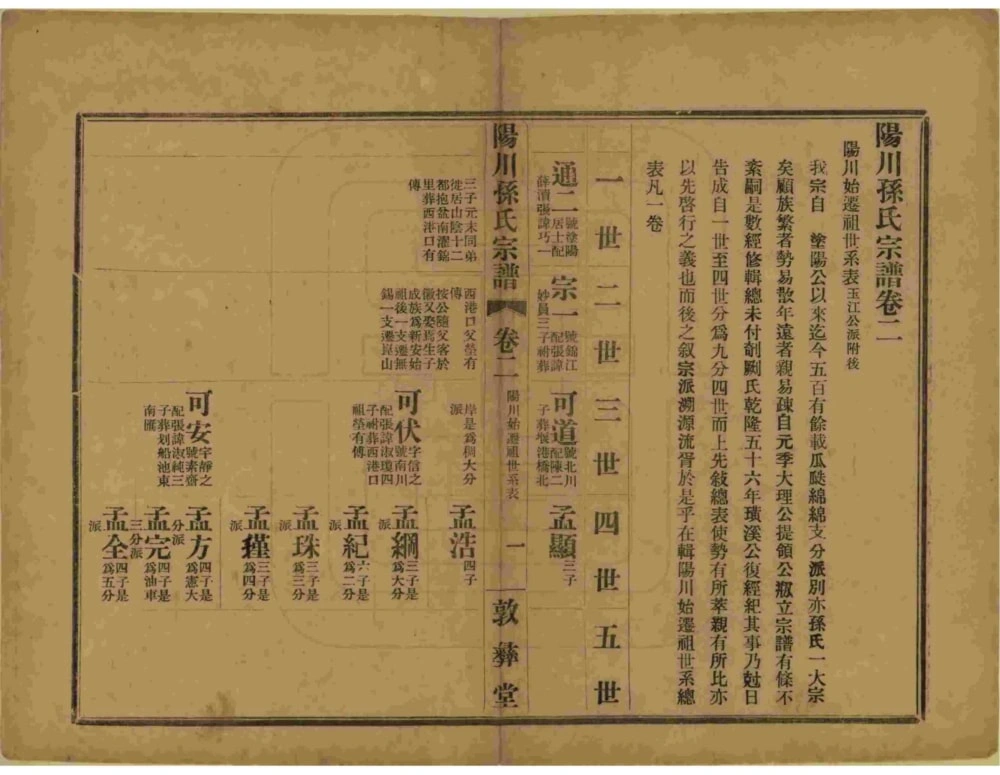 陽川孫氏宗譜卷二
陽川始遷祖世系表玉江公派附後
我宗自　塗陽公以來迄今五百有餘載瓜瓞綿綿支分派別亦孫氏一大宗
矣顧族繁者勢易散年遠者親易疎自元季大理公提領公剏立宗譜有條不
紊嗣是數經修輯總未付剞劂氏乾隆五十六年璜溪公復經紀其事乃尅日
告成自一世至四世分爲九分四世而上先敍總表使勢有所萃親有所比亦
以先啓行之義也而後之敍宗派溯源流胥於是乎在輯陽川始遷祖世系總
表凡一卷
一世二世三世四世五世
通二號塗陽居士配
薛瀆張諱巧一
宗一號錦江配張諱
妙員三子祔葬
可道號北川配陳二
子葬堰港橋北
孟顯三子
陽川孫氏宗譜　卷二　陽川始遷祖世系表　一　敦彝堂
三子元末同弟
徙居山陰十二
都抱盆南濯錦
里葬西港口有
傳
西港口父塋有
傳
按公隨父客於
徽又娶焉生子
成族爲新安始
祖後一支遷無
錫一支遷崑山
岸是爲稠大分
派
可伏字信之號南川
配張諱淑瓊四
子祔葬西港口
祖塋有傳
可安字靜之號素齋
配張諱淑純三
子葬划船池東
南匯
孟浩四子
孟綱三子是爲大分
派
孟紀六子是爲二分
派
孟珠三子是爲三分
派
孟瑾三子是爲四分
派
孟方四子是爲憲大
分派
孟完四子是爲油車
三分派
孟全四子是爲五分
派